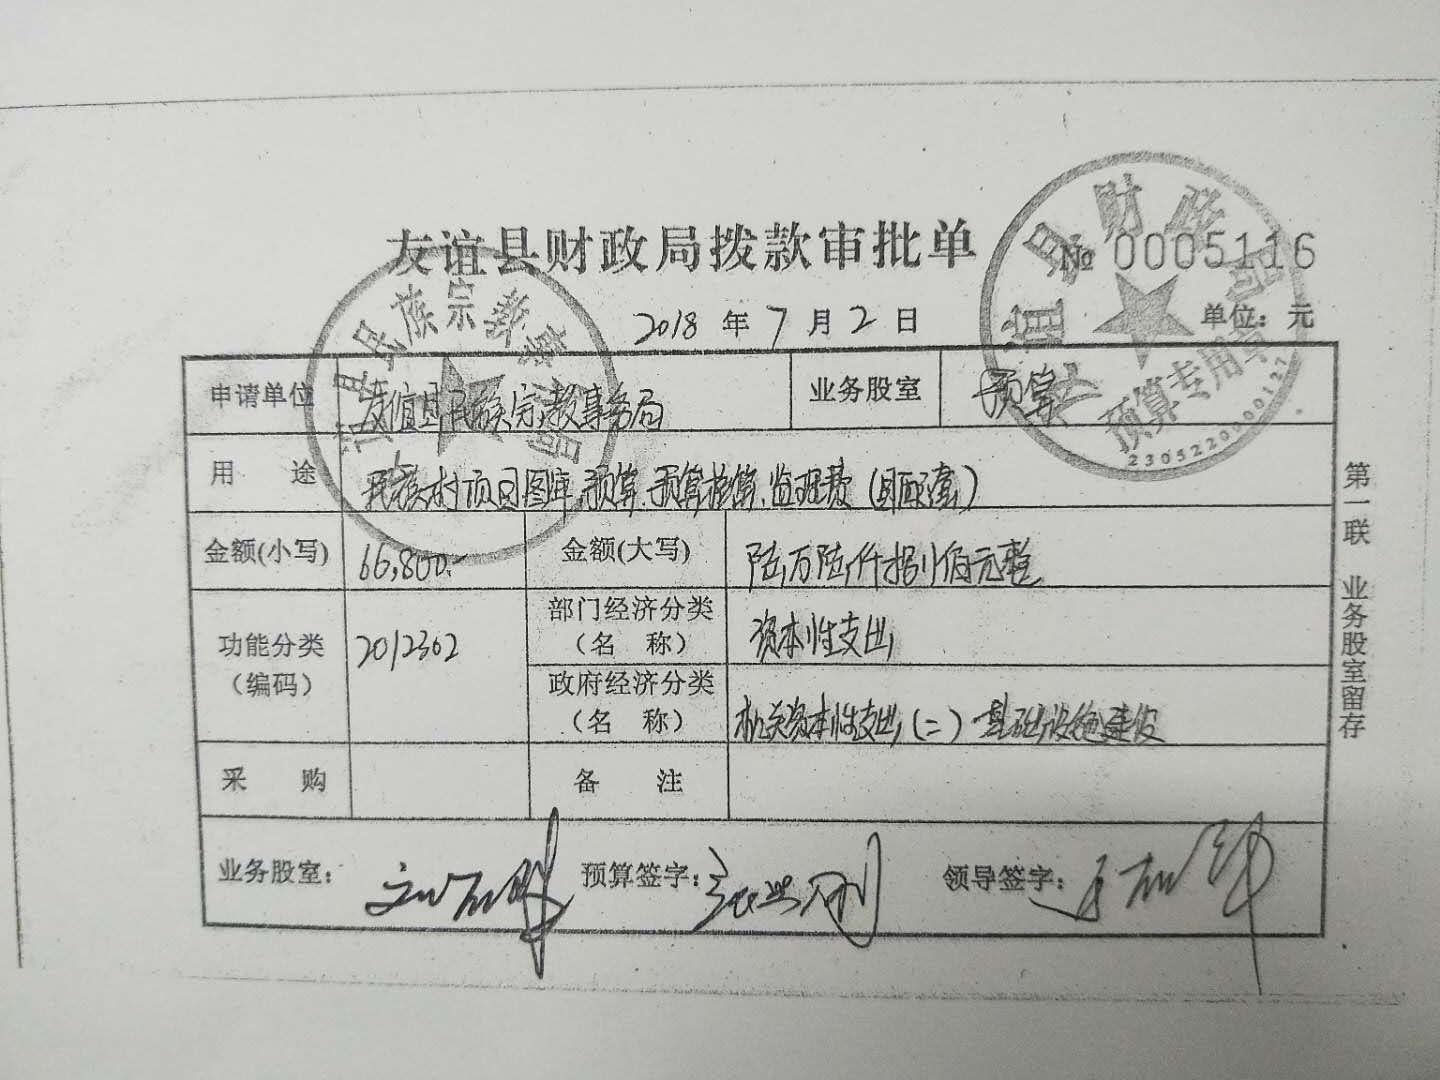 友谊县财政局拨款审批单
№ 0005116
2018 年 7 月 2 日
单位：元
申请单位 友谊县民族宗教事务局 业务股室 预算
用 途 民族村项目图审,预算.预算挂算.监理费
金额(小写) 66,800.- 金额(大写) 陆万陆仟捌佰元整
功能分类（编码） 2012302
部门经济分类（名 称） 资本性支出
政府经济分类（名 称） 机关资本性支出(二) 基础设施建设
采 购 备 注
业务股室： 预算签字： 领导签字：
第一联 业务股室留存
县民族宗教事务局
谊县财政局
预算专用章
2305220000127